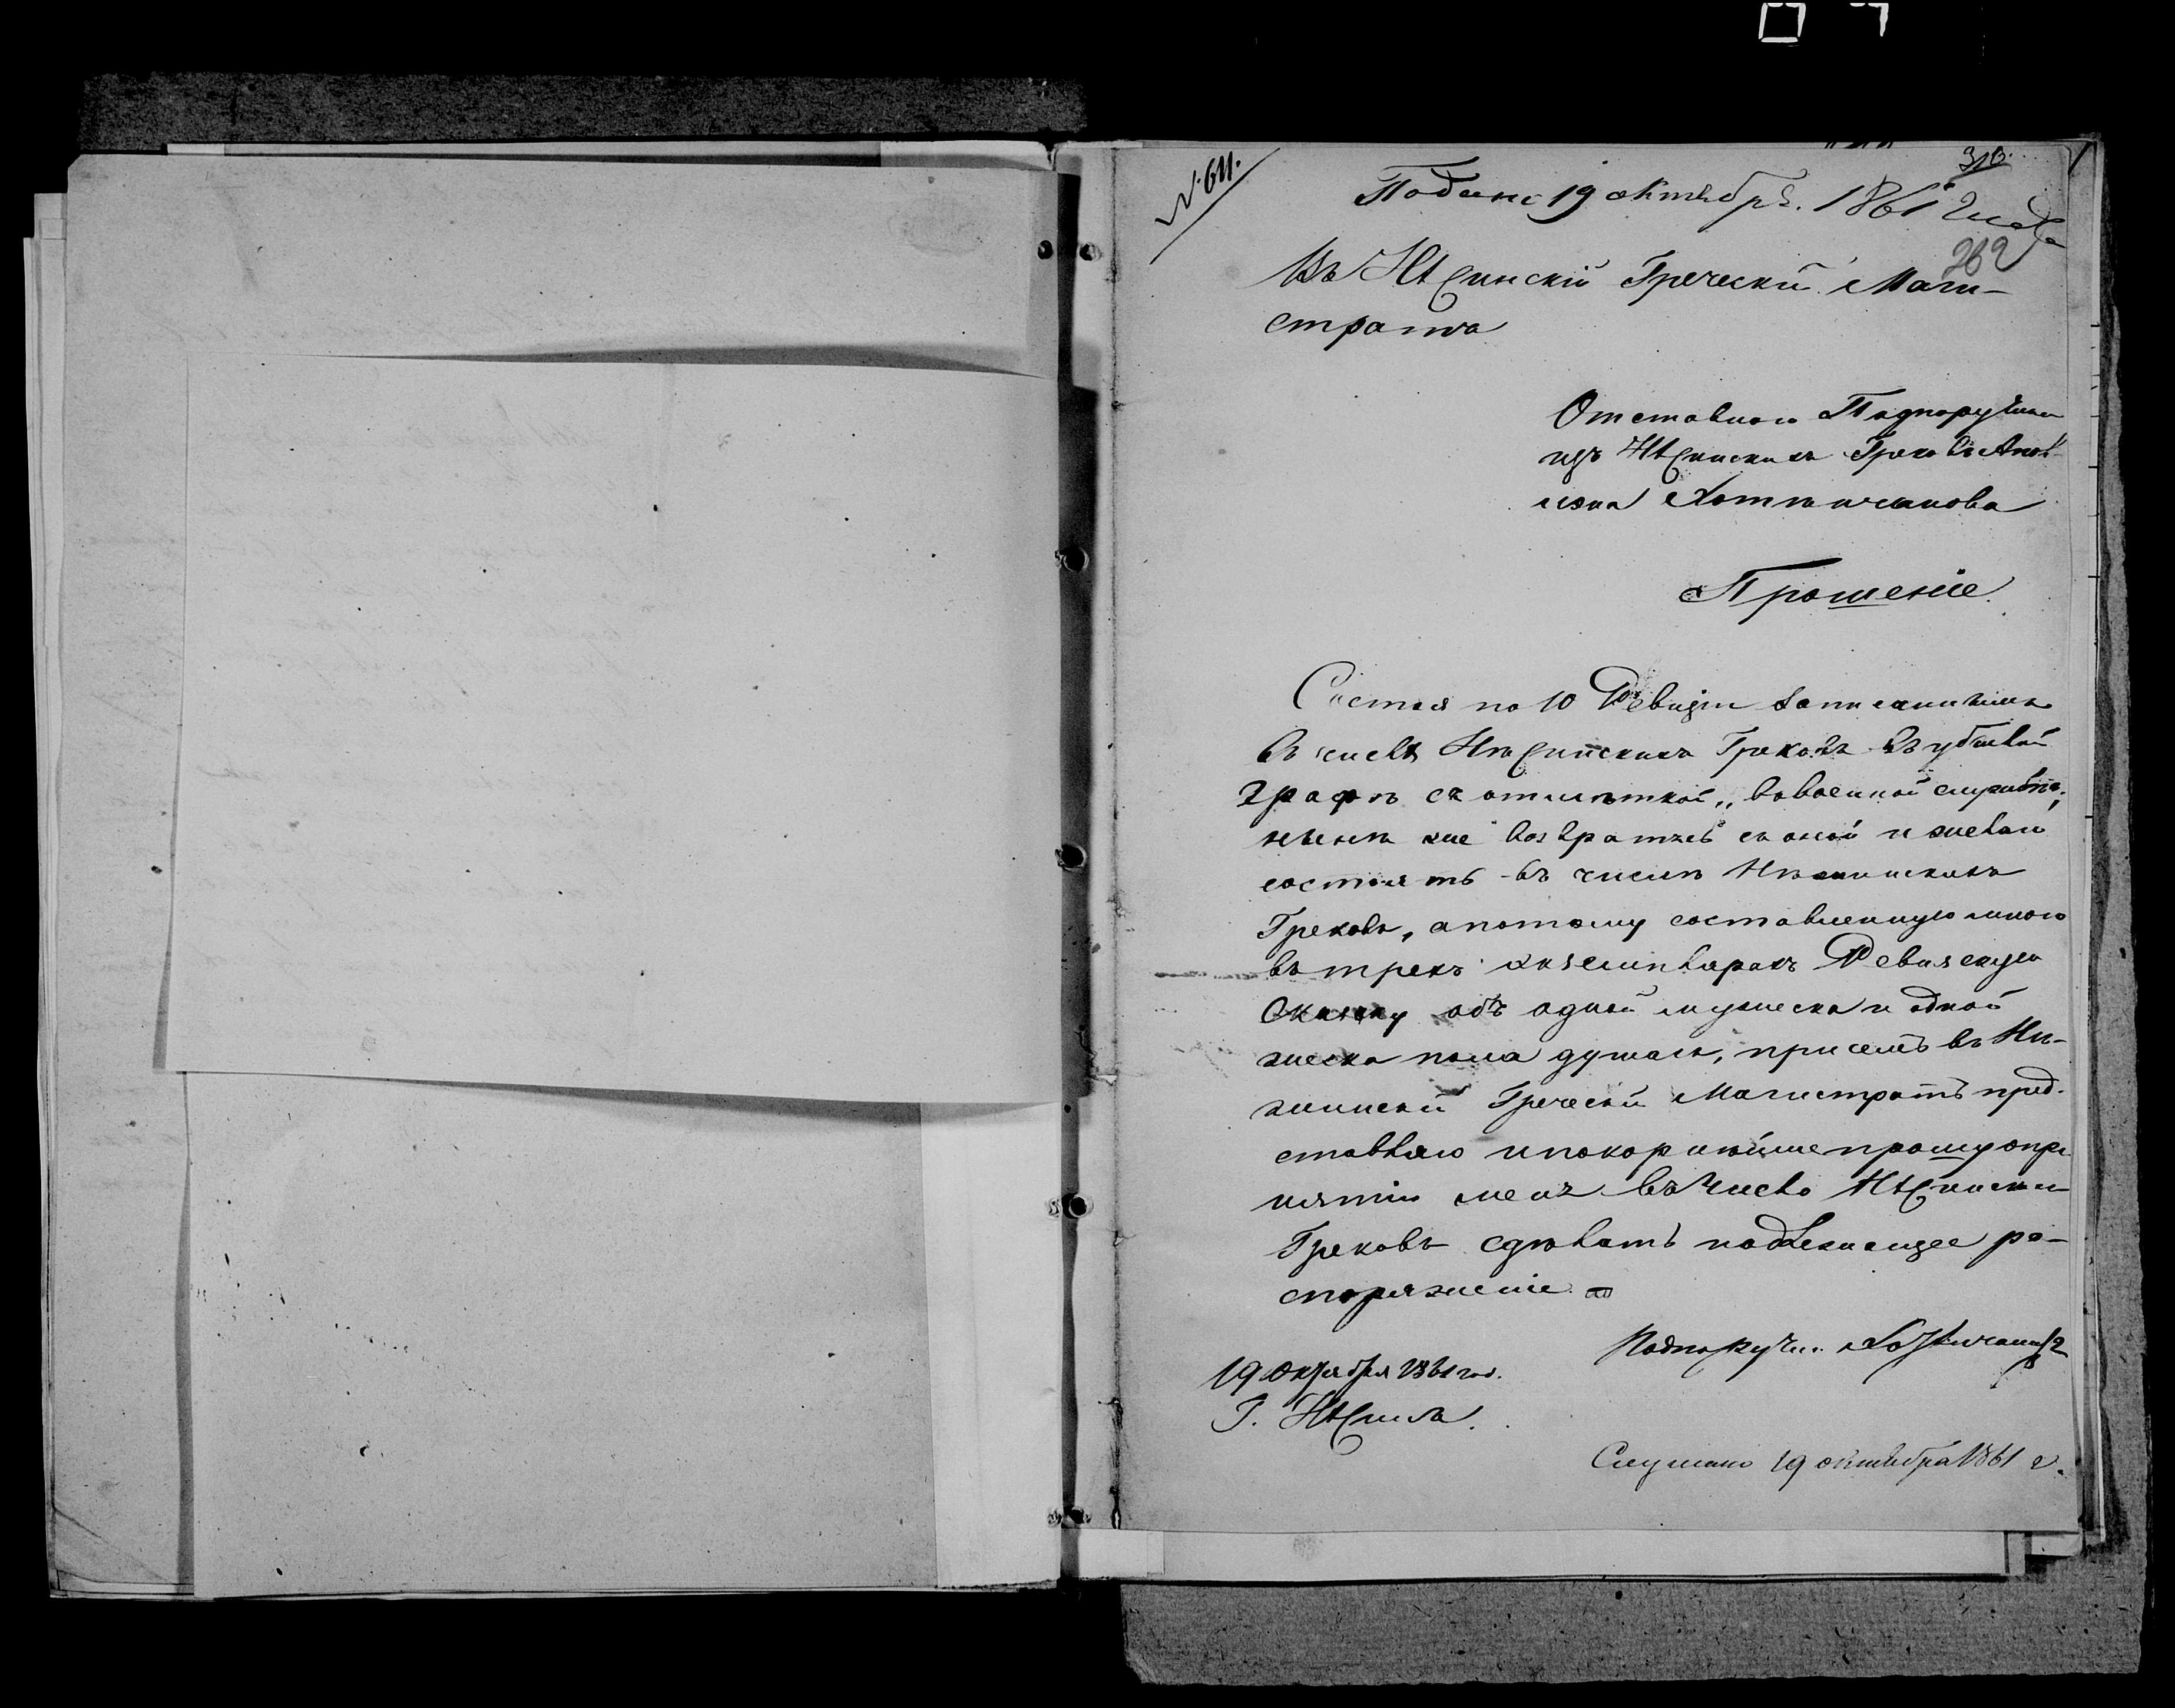 № 611.
310.
Подано 19 октября. 1861 года
262
Въ Нѣжинскій Греческій Маги-
страта
Отставного Подпоручика
изъ Нѣжинскихъ Грековъ
Хотпичанова
Прошеніе.
Состоя по 10 Ревизіи записаннымъ
въ числѣ Нѣжинскихъ Грековъ въ убылой
графѣ съ отмѣткой „ въ военной службѣ„
нынѣ же возвратясь съ оной и желаю
состоять въ числѣ Нѣжинскихъ
Грековъ, а потому составленную мною
въ трехъ экземплярахъ Ревизскую
Сказку объ одной мужеска и одной
женска пола душахъ, при семъ въ Нѣ-
жинскій Греческій Магистратъ пред-
ставляю и покорнѣйше прошу о при
нятіи меня въ число Нѣжинскихъ
Грековъ сдѣлать подлежащее ра-
споряженіе
Подпоручи.
19 октября 1861 год.
Г. Нѣжинъ.
Слушано 19 октября 1861 г.